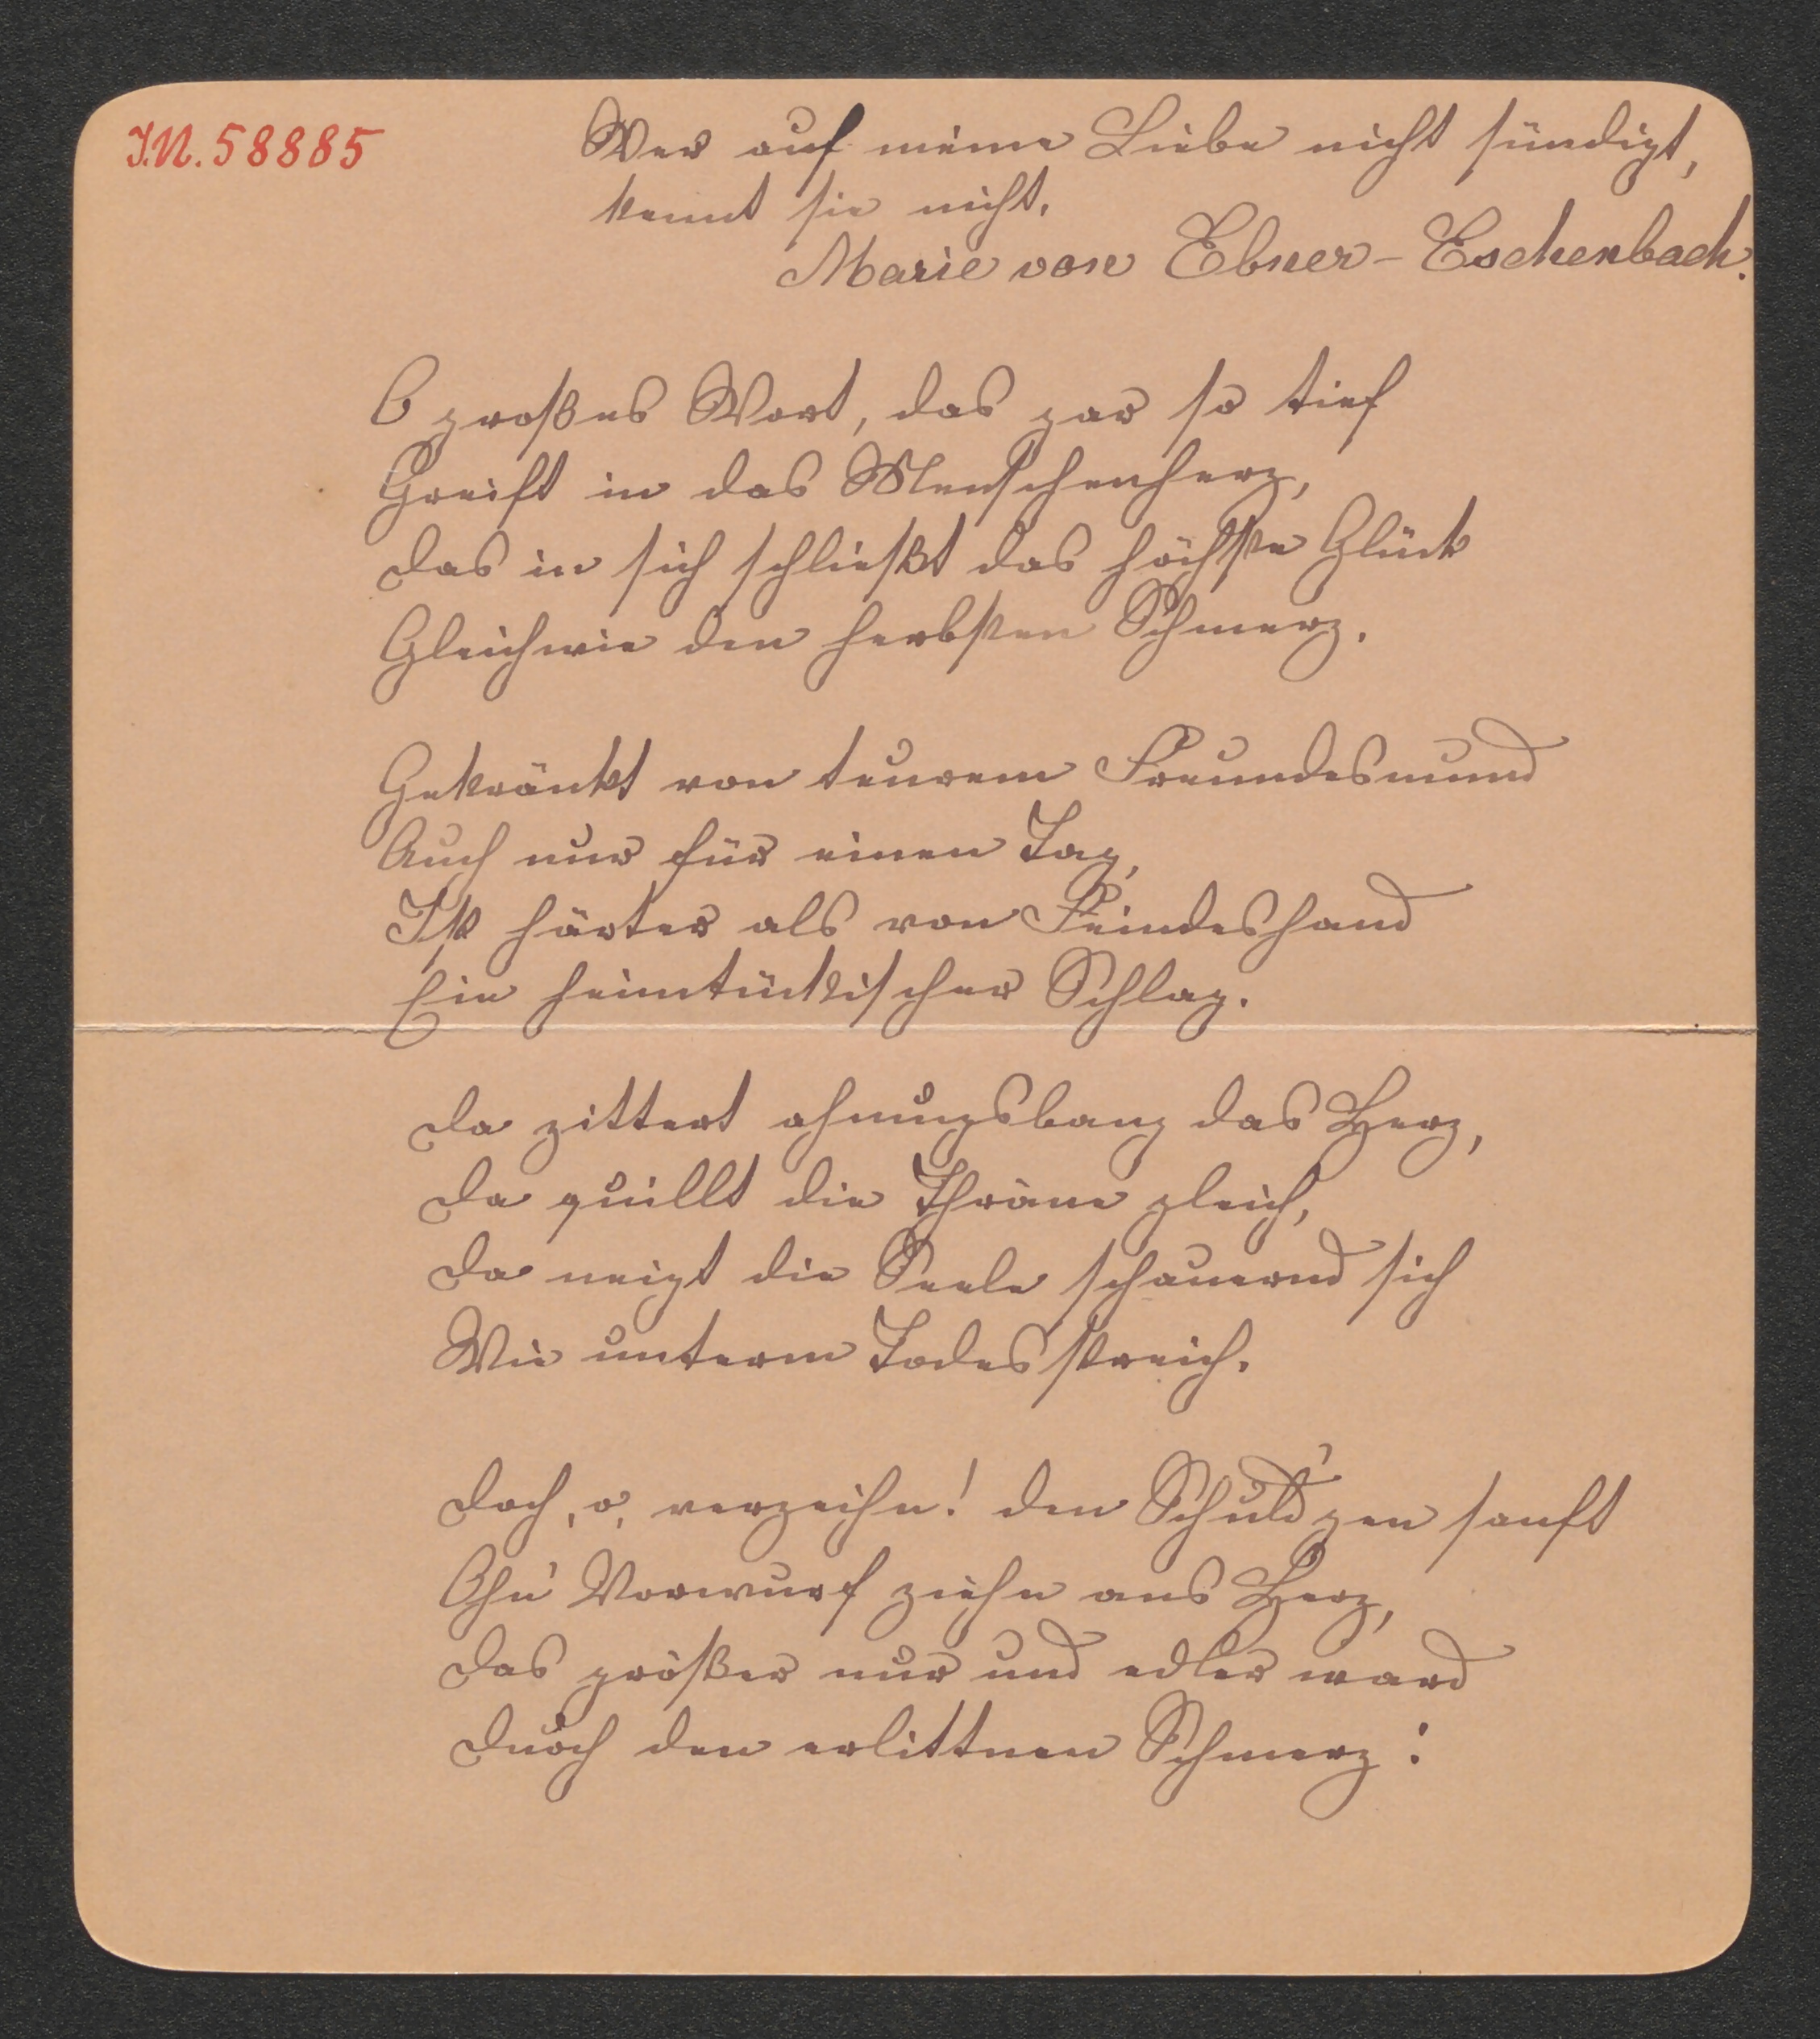 I.N. 58885
Wer auf meine Liebe nicht sündigt,
kennt sie nicht.
Marie von Ebner-Eschenbach.
O großes Wort, das gar so tief
Greift in das Menschenherz,
Das in sich schließt das höchste Glück
Gleichwie den herbsten Schmerz.
Gekränkt von teurem Freundesmund
Auch nur für einen Tag,
Ist härter als von Feindeshand
Ein heimtückischer Schlag.
Da zittert ahnungsbang das Herz,
Da quillt die Thräne gleich,
Da neigt die Seele schauernd sich
Wie unterm Todesstreich.
Doch, o, verzeihn! den Schuld'gen sanft
Ohn' Vorwurf ziehn ans Herz,
Das größer nur und edler ward
Durch den erlittnen Schmerz: